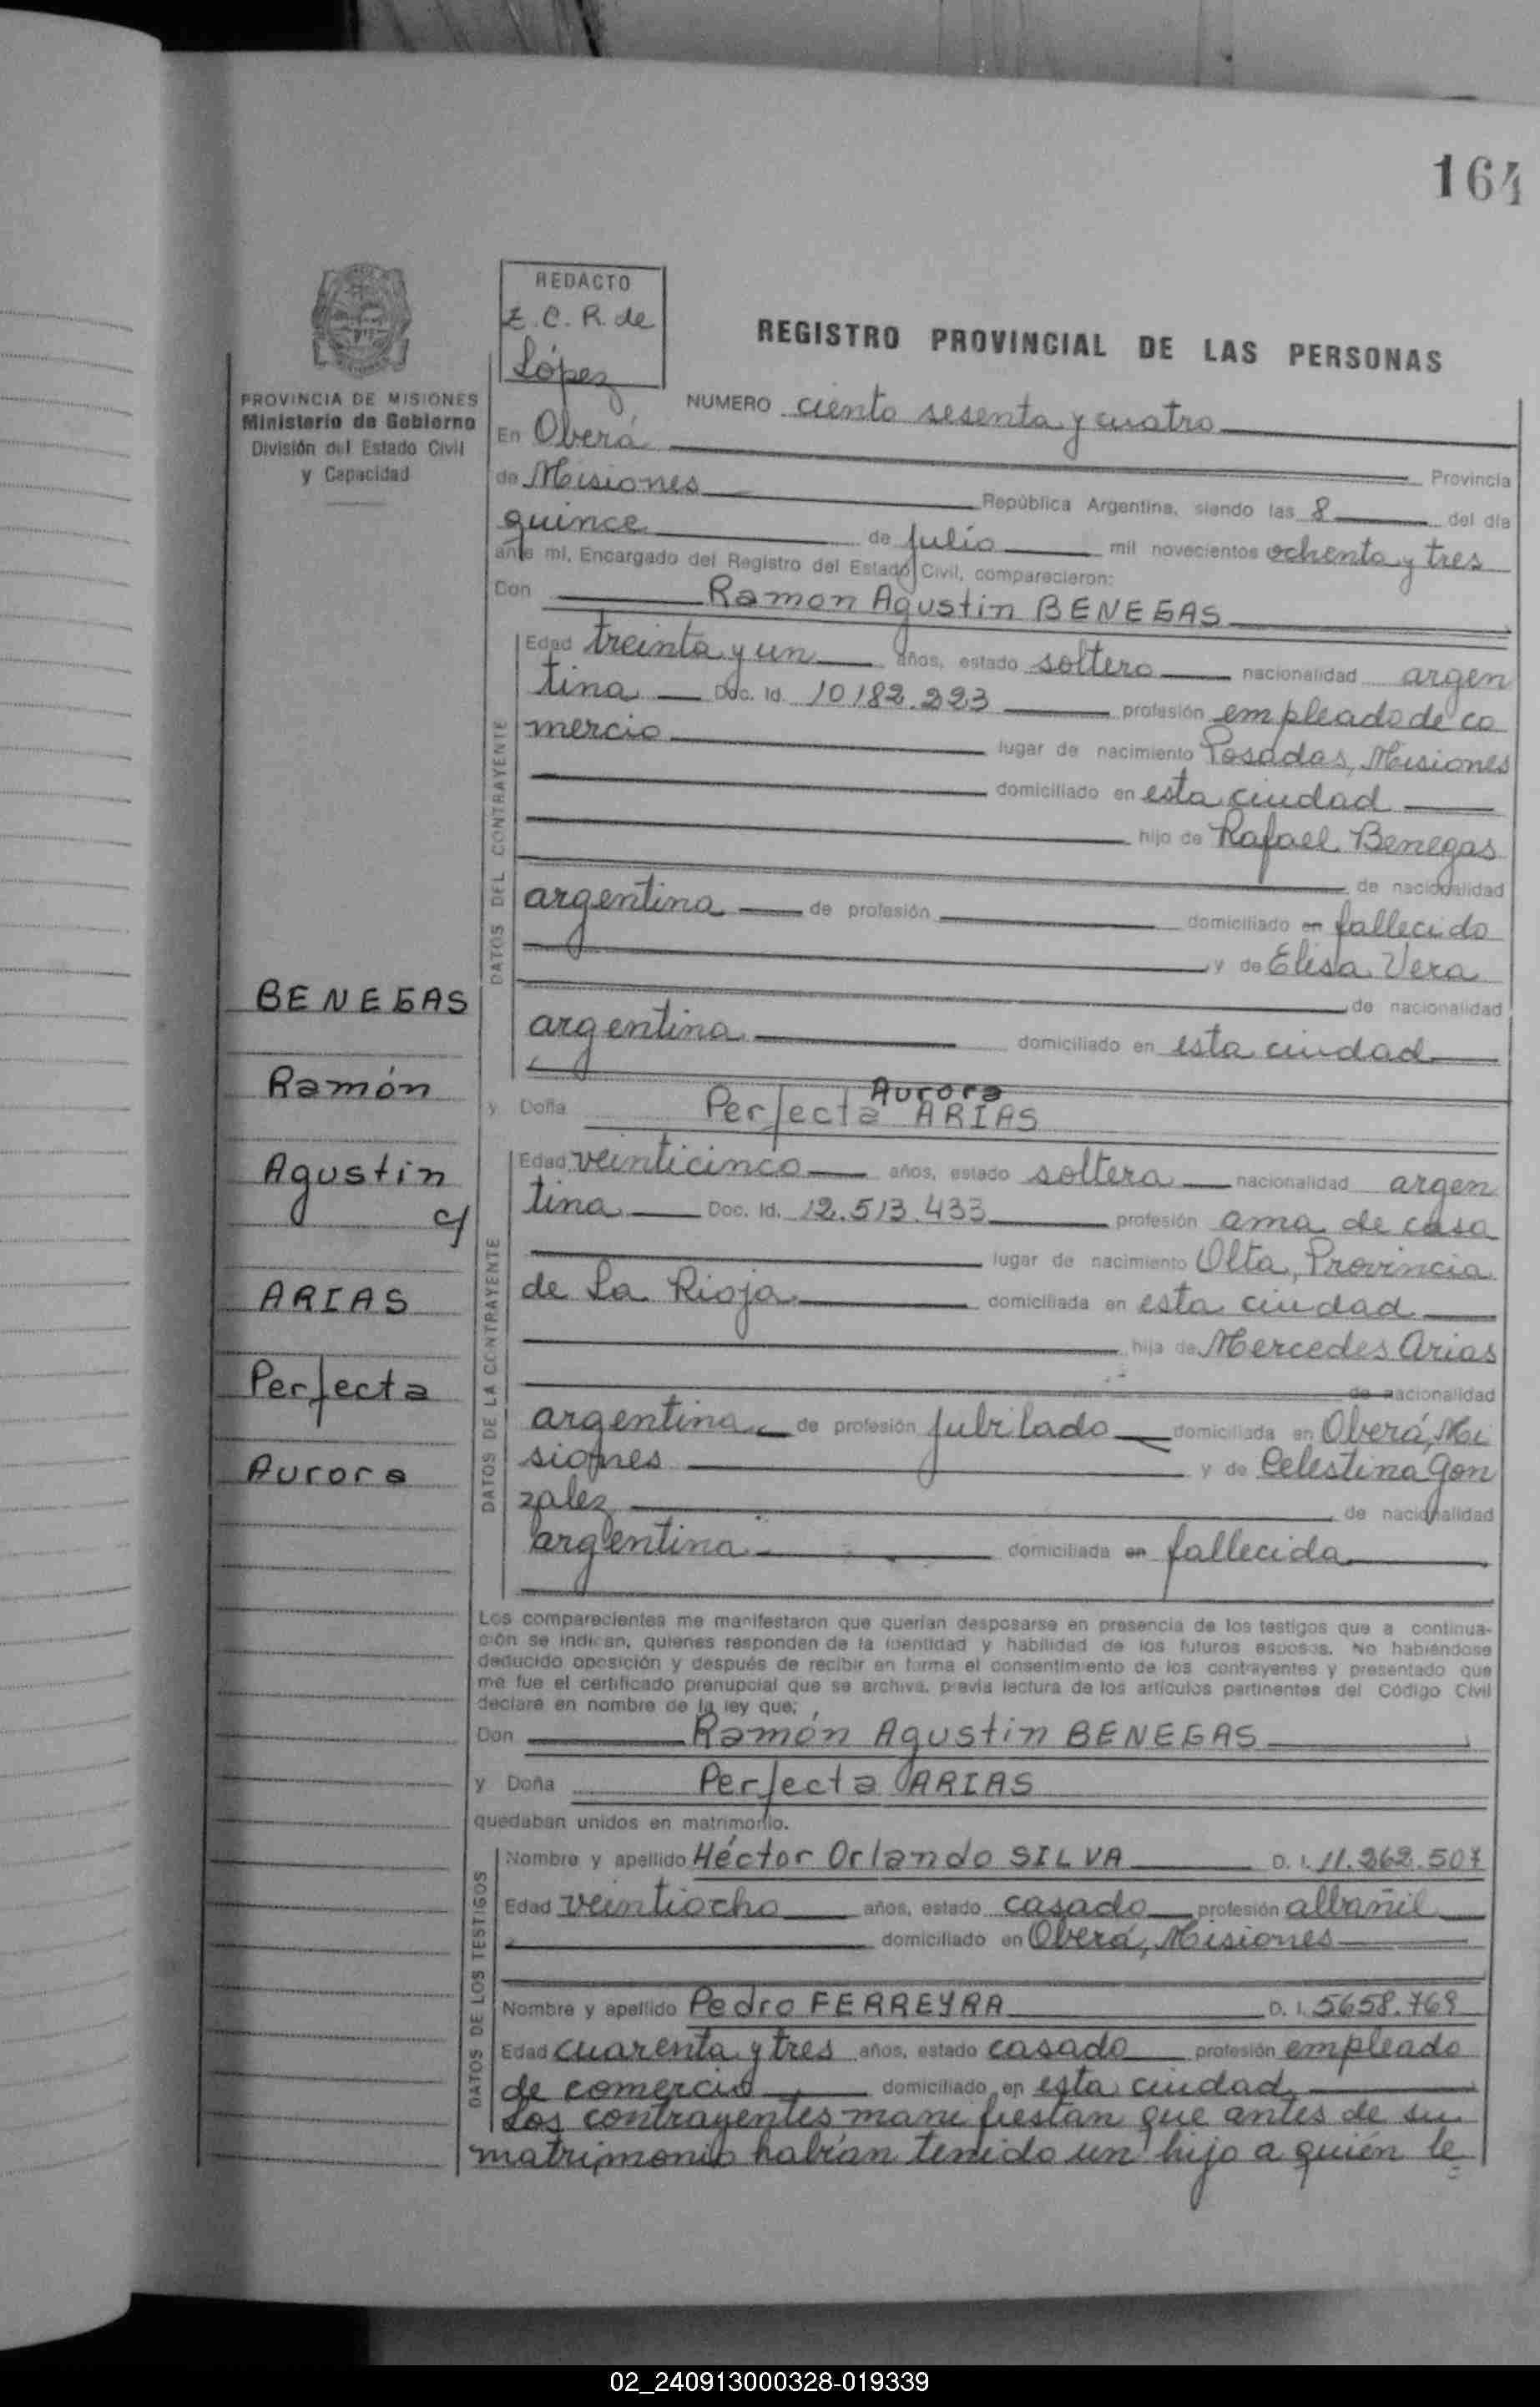 164
REDACTO
E. C. R. de
López
REGISTRO PROVINCIAL DE LAS PERSONAS
PROVINCIA DE MISIONES
Ministerio de Gobierno
División del Estado Civil
y Capacidad
NUMERO ciento sesenta y cuatro
En Oberá Provincia
de Misiones República Argentina, siendo las 8 del día
quince de julio mil novecientos ochenta y tres
ante mí, Encargado del Registro del Estado Civil, comparecieron:
Don Ramon Agustin BENEGAS
DATOS DEL CONTRAYENTE
Edad treinta y un años, estado soltero nacionalidad argen
tina Doc. Id. 10182.223 profesión empleado de co
mercio lugar de nacimiento Posadas, Misiones
domiciliado en esta ciudad
hijo de Rafael Benegas
de nacionalidad
argentina de profesión domiciliado en fallecido
y de Elisa Vera
de nacionalidad
argentina domiciliado en esta ciudad
BENEGAS
Ramón
Agustin
c/
ARIAS
Perfecta
Aurora
Aurora
y Doña Perfecta ARIAS
DATOS DE LA CONTRAYENTE
Edad veinticinco años, estado soltera nacionalidad argen
tina Doc. Id. 12.513.433 profesión ama de casa
lugar de nacimiento Olta, Provincia
de La Rioja domiciliada en esta ciudad
hija de Mercedes Arias
de nacionalidad
argentina de profesión jubilado domiciliada en Oberá, Mi
siones y de Celestina Gon
zalez de nacionalidad
argentina domiciliada en fallecida
Los comparecientes me manifestaron que querían desposarse en presencia de los testigos que a continua-
ción se indican, quienes responden de la identidad y habilidad de los futuros esposos. No habiéndose
deducido oposición y después de recibir en forma el consentimiento de los contrayentes y presentado que
me fue el certificado prenupcial que se archiva, previa lectura de los artículos pertinentes del Código Civil
declaré en nombre de la ley que;
Don Ramón Agustin BENEGAS
y Doña Perfecta ARIAS
quedaban unidos en matrimonio.
DATOS DE LOS TESTIGOS
Nombre y apellido Héctor Orlando SILVA D. I. 11.262.507
Edad veintiocho años, estado casado profesión albañil
domiciliado en Oberá, Misiones
Nombre y apellido Pedro FERREYRA D. I. 5658.769
Edad cuarenta y tres años, estado casado profesión empleado
de comercio domiciliado en esta ciudad
Los contrayentes manifiestan que antes de su
matrimonio habían tenido un hijo a quién le
02_240913000328-019339